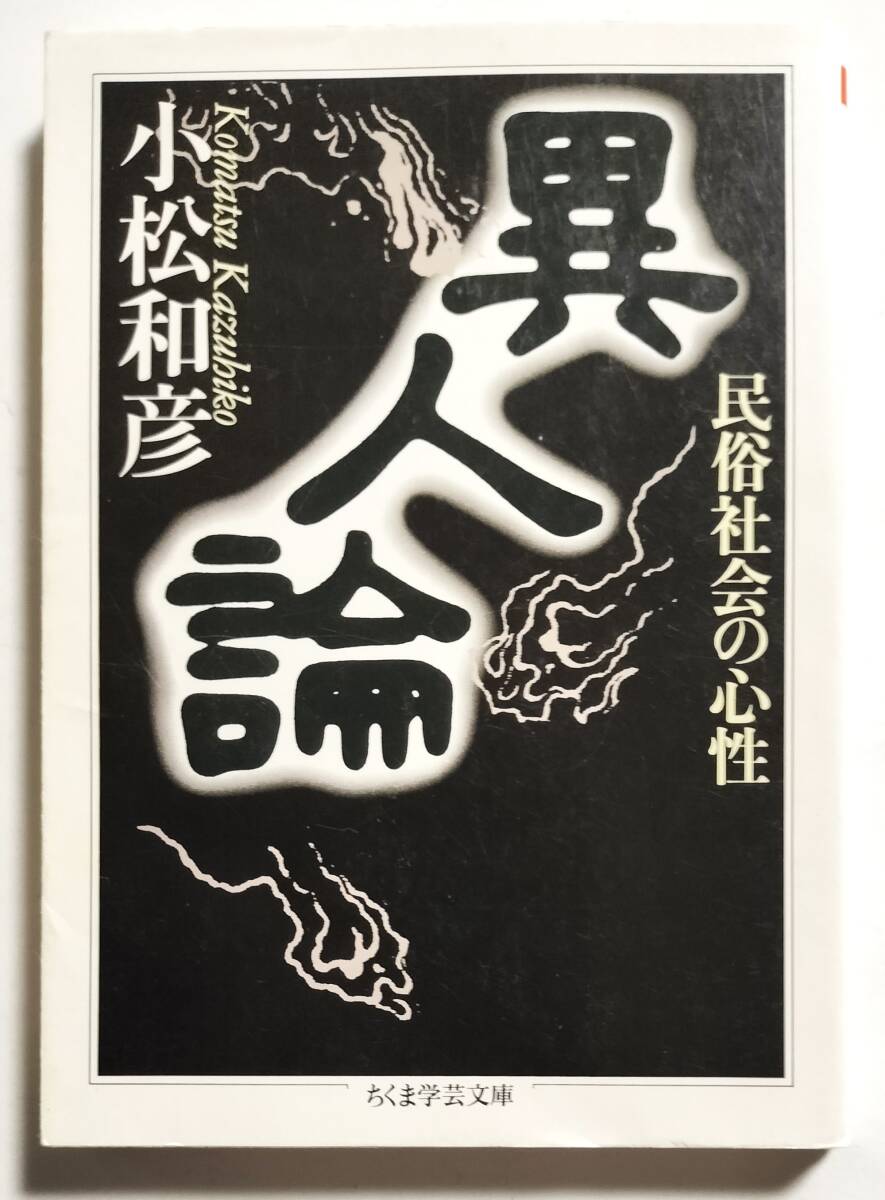 異人論
民俗社会の心性
小松和彦
Komatsu Kazuhiko
ちくま学芸文庫